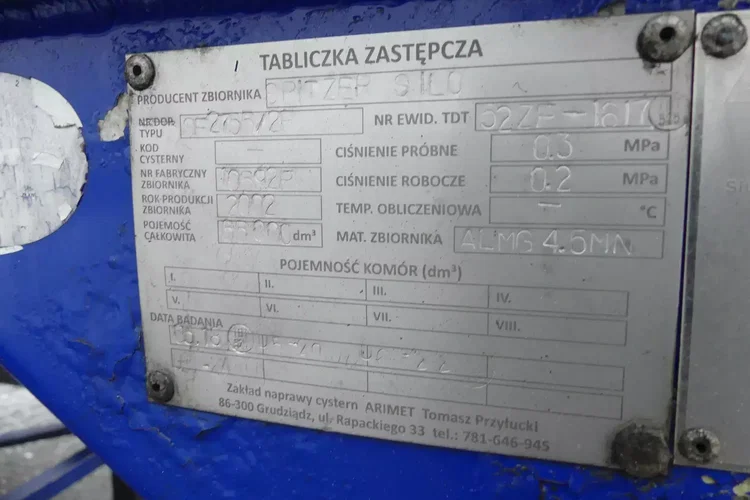 TABLICZKA ZASTĘPCZA
PRODUCENT ZBIORNIKA SPITZER SILO
NR DOP. TYPU
NR EWID. TDT
KOD CYSTERNY —
CIŚNIENIE PRÓBNE 0.3 MPa
NR FABRYCZNY ZBIORNIKA
CIŚNIENIE ROBOCZE 0.2 MPa
ROK PRODUKCJI ZBIORNIKA 2002
TEMP. OBLICZENIOWA — °C
POJEMOŚĆ CAŁKOWITA dm³
MAT. ZBIORNIKA ALMG 4.5MN
POJEMNOŚĆ KOMÓR (dm³)
I. II. III. IV.
V. VI. VII. VIII.
DATA BADANIA
Zakład naprawy cystern ARIMET Tomasz Przyłucki
86-300 Grudziądz, ul. Rapackiego 33 tel.: 781-646-945